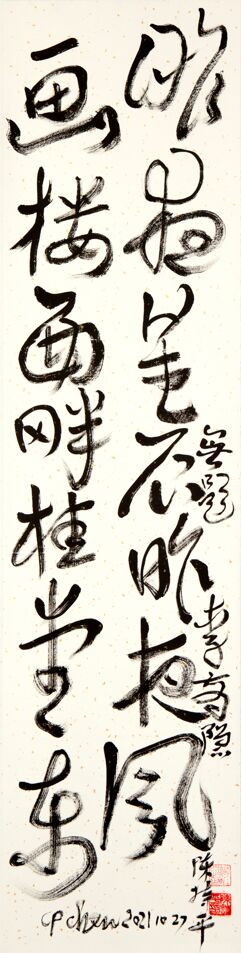 昨夜星辰昨夜風
画楼西畔桂堂东
無題 李商隐
陳持平
CP Chen 2021 10 27